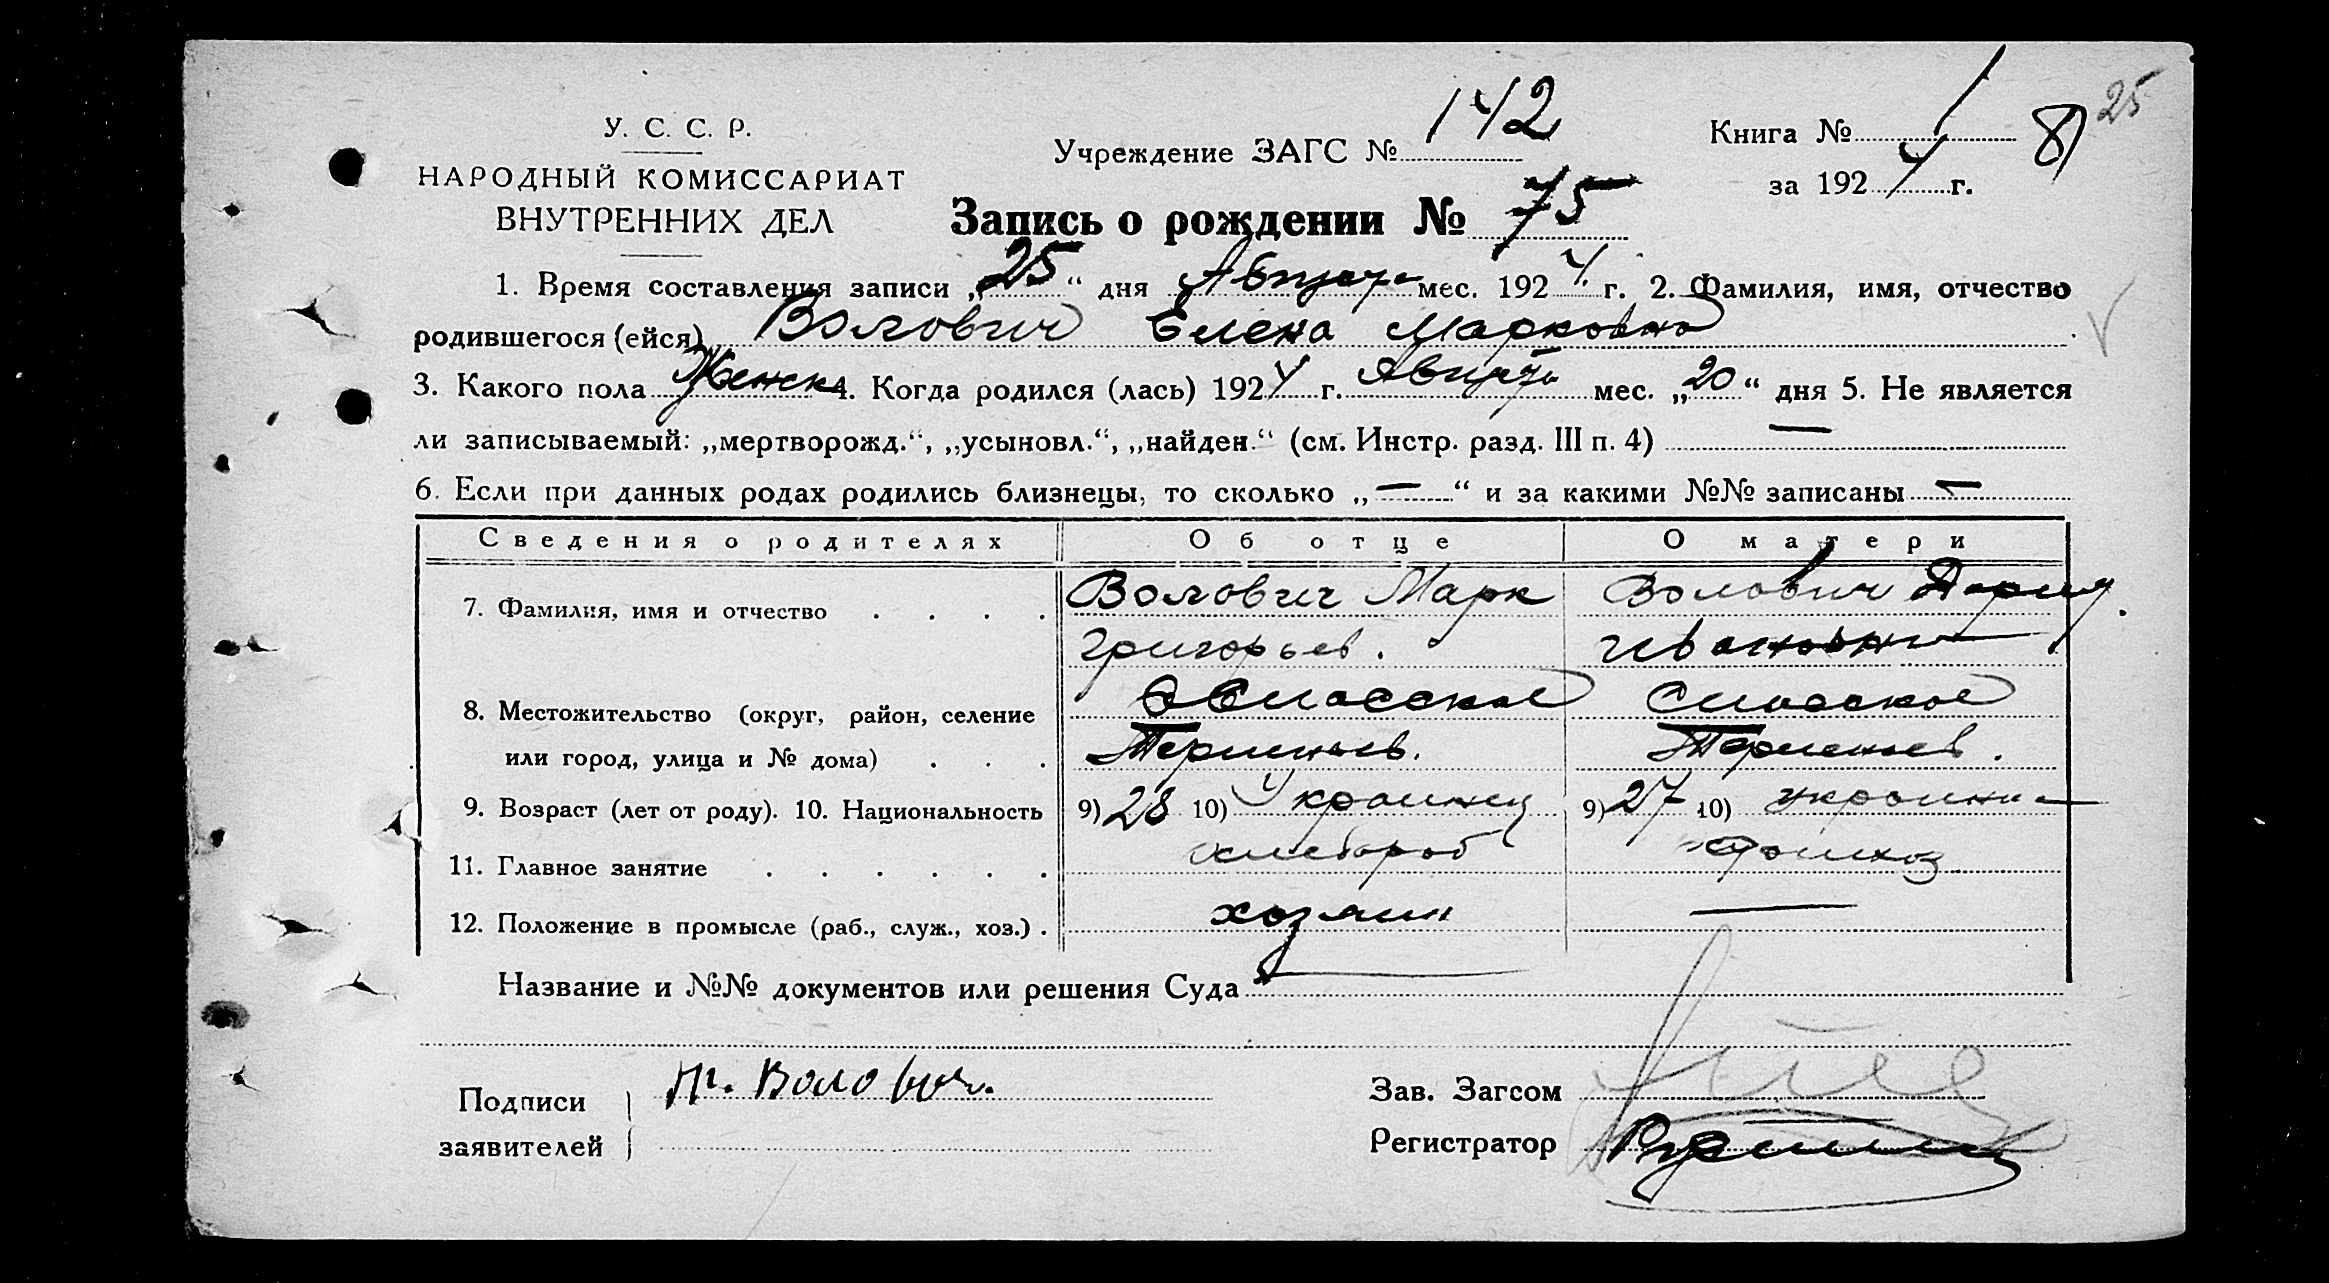 25
У. С. С. Р.
НАРОДНЫЙ КОМИССАРИАТ
ВНУТРЕННИХ ДЕЛ
Учреждение ЗАГС № 142
Книга № 1
за 1924 г.
Запись о рождении № 75
1. Время составления записи „25“ дня Августа мес. 1924 г. 2. Фамилия, имя, отчество
родившегося (ейся) Волович Елена Марковна
3. Какого пола Женск 4. Когда родился (лась) 1924 г. Августа мес. „20“ дня 5. Не является
ли записываемый: „мертворожд.“, „усыновл.“, „найден.“ (см. Инстр. разд. III п. 4) —
6. Если при данных родах родились близнецы, то сколько „—“ и за какими №№ записаны —
Сведения о родителях Об отце О матери
7. Фамилия, имя и отчество . . . . Волович Марк Волович Дария
Григорьев. Ивановна
8. Местожительство (округ, район, селение
или город, улица и № дома) . . .
9. Возраст (лет от роду). 10. Национальность 9) 28 10) Украинец 9) 27 10) украинка
11. Главное занятие . . . . . . хлебороб
12. Положение в промысле (раб., служ., хоз.) . хозяин —
Название и №№ документов или решения Суда —
Подписи заявителей М. Волович.
Зав. Загсом
Регистратор